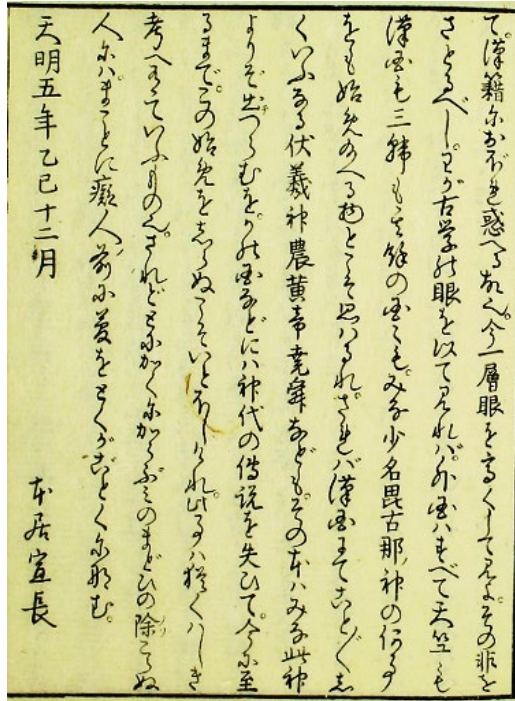 て。漢籍におぼれ惑へる故也。今一層眼を高くして見よ。その非を
さとるべし。わが古学の眼を以て見れば。外国はすべて天竺も
漢国も三韓も其餘の国々も。みな少名毘古那神の何事
をも始め給へる物とこそ思はるれ。されば漢国にてこと〴〵し
くいふなる伏羲神農黄帝堯舜なども。その本はみな此神
よりぞ出つらむを。かの国などには神代の傳説を失ひて。今に至
るまで。この始めをしらぬこそいとほしけれ。此事は猶くはしき
考へ有ていふもの也。されどとにかくにからぶみのまどひの除こらぬ
人には。まことに癡人ノ前に夢をとくがごとくになむ。
天明五年乙巳十二月
本居宣長